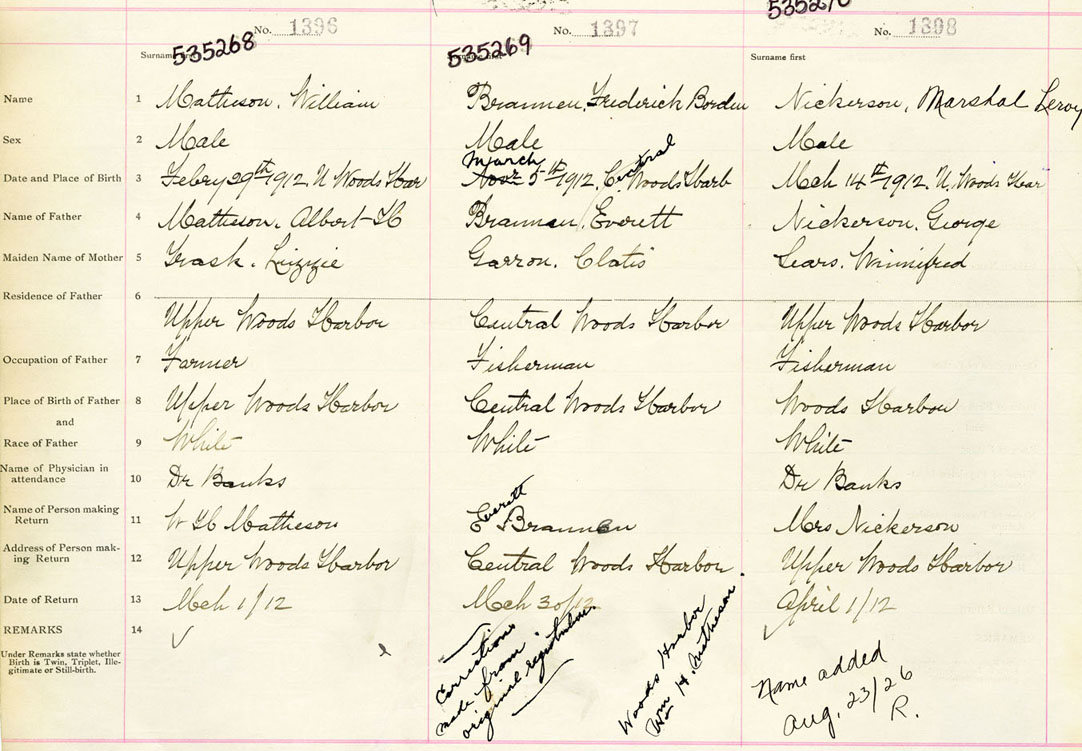 535268 No. 1396 535269 No. 1397 535270 No. 1398
Surname first Surname first Surname first
Name 1 Matheson, William Brannen, Frederick Borden Nickerson, Marshal Leroy
Sex 2 Male Male Male
March Central
Date and Place of Birth 3 Febry 29th 1912 U Woods Har 5th 1912, C Woods Harb Mch 14th 1912. U. Woods Har
Name of Father 4 Matheson, Albert H Brannen, Everett Nickerson, George
Maiden Name of Mother 5 Trask, Lizzie Garron, Clatis Sears, Winnifred
Residence of Father 6
Upper Woods Harbor Central Woods Harbor Upper Woods Harbor
Occupation of Father 7 Farmer Fisherman Fisherman
Place of Birth of Father 8 Upper Woods Harbor Central Woods Harbor Woods Harbor
and
Race of Father 9 White White White
Name of Physician in
attendance 10 Dr Banks Dr Banks
Name of Person making Everett
Return 11 W H Matheson E Brannen Mrs Nickerson
Address of Person mak-
ing Return 12 Upper Woods Harbor Central Woods Harbor Upper Woods Harbor
Date of Return 13 Mch 1/12 Mch 30/12 April 1/12
REMARKS 14
Under Remarks state whether
Birth is Twin, Triplet, Ille-
gitimate or Still-birth.
Corrections
made from
original registration
Woods Harbor
Wm H. Matheson.
Name added
Aug. 23/26
R.